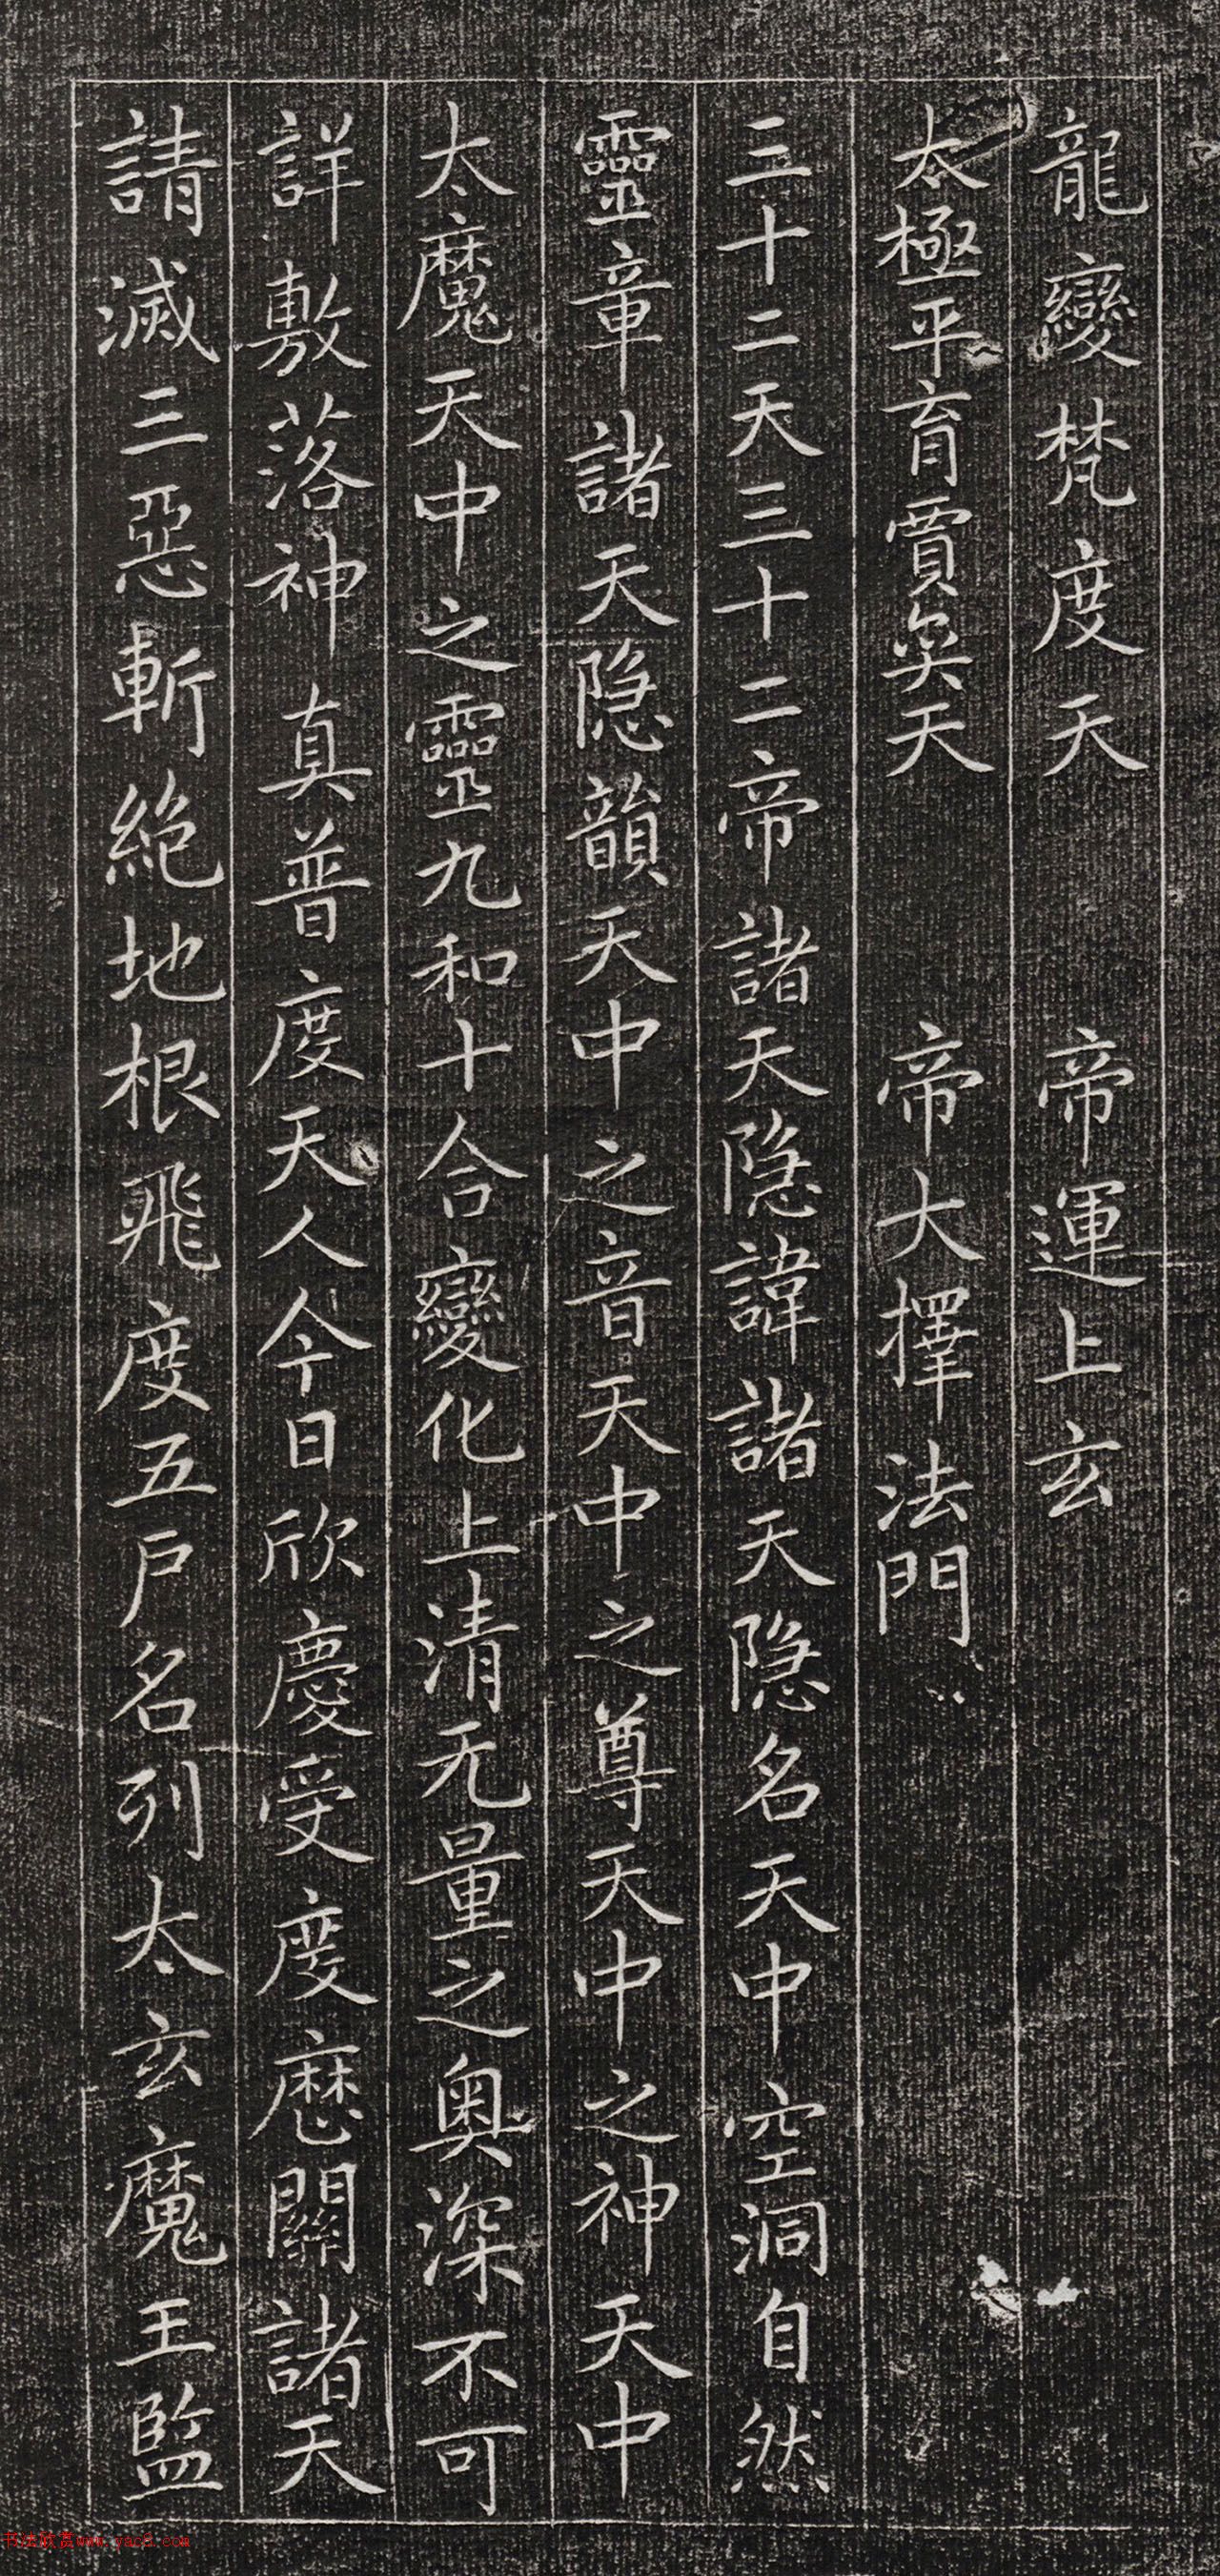 龍變梵度天 帝運上玄
太極平育賈奕天 帝大擇法門
三十二天三十二帝諸天隐諱諸天隐名天中空洞自然
靈章諸天隐韻天中之音天中之尊天中之神天中
太魔天中之靈九和十合變化上清无量之奥深不可
詳敷落神真普度天人今日欣慶受度厯關諸天
請滅三惡斬絶地根飛度五户名列太玄魔王監
书法欣赏www.yac8.com